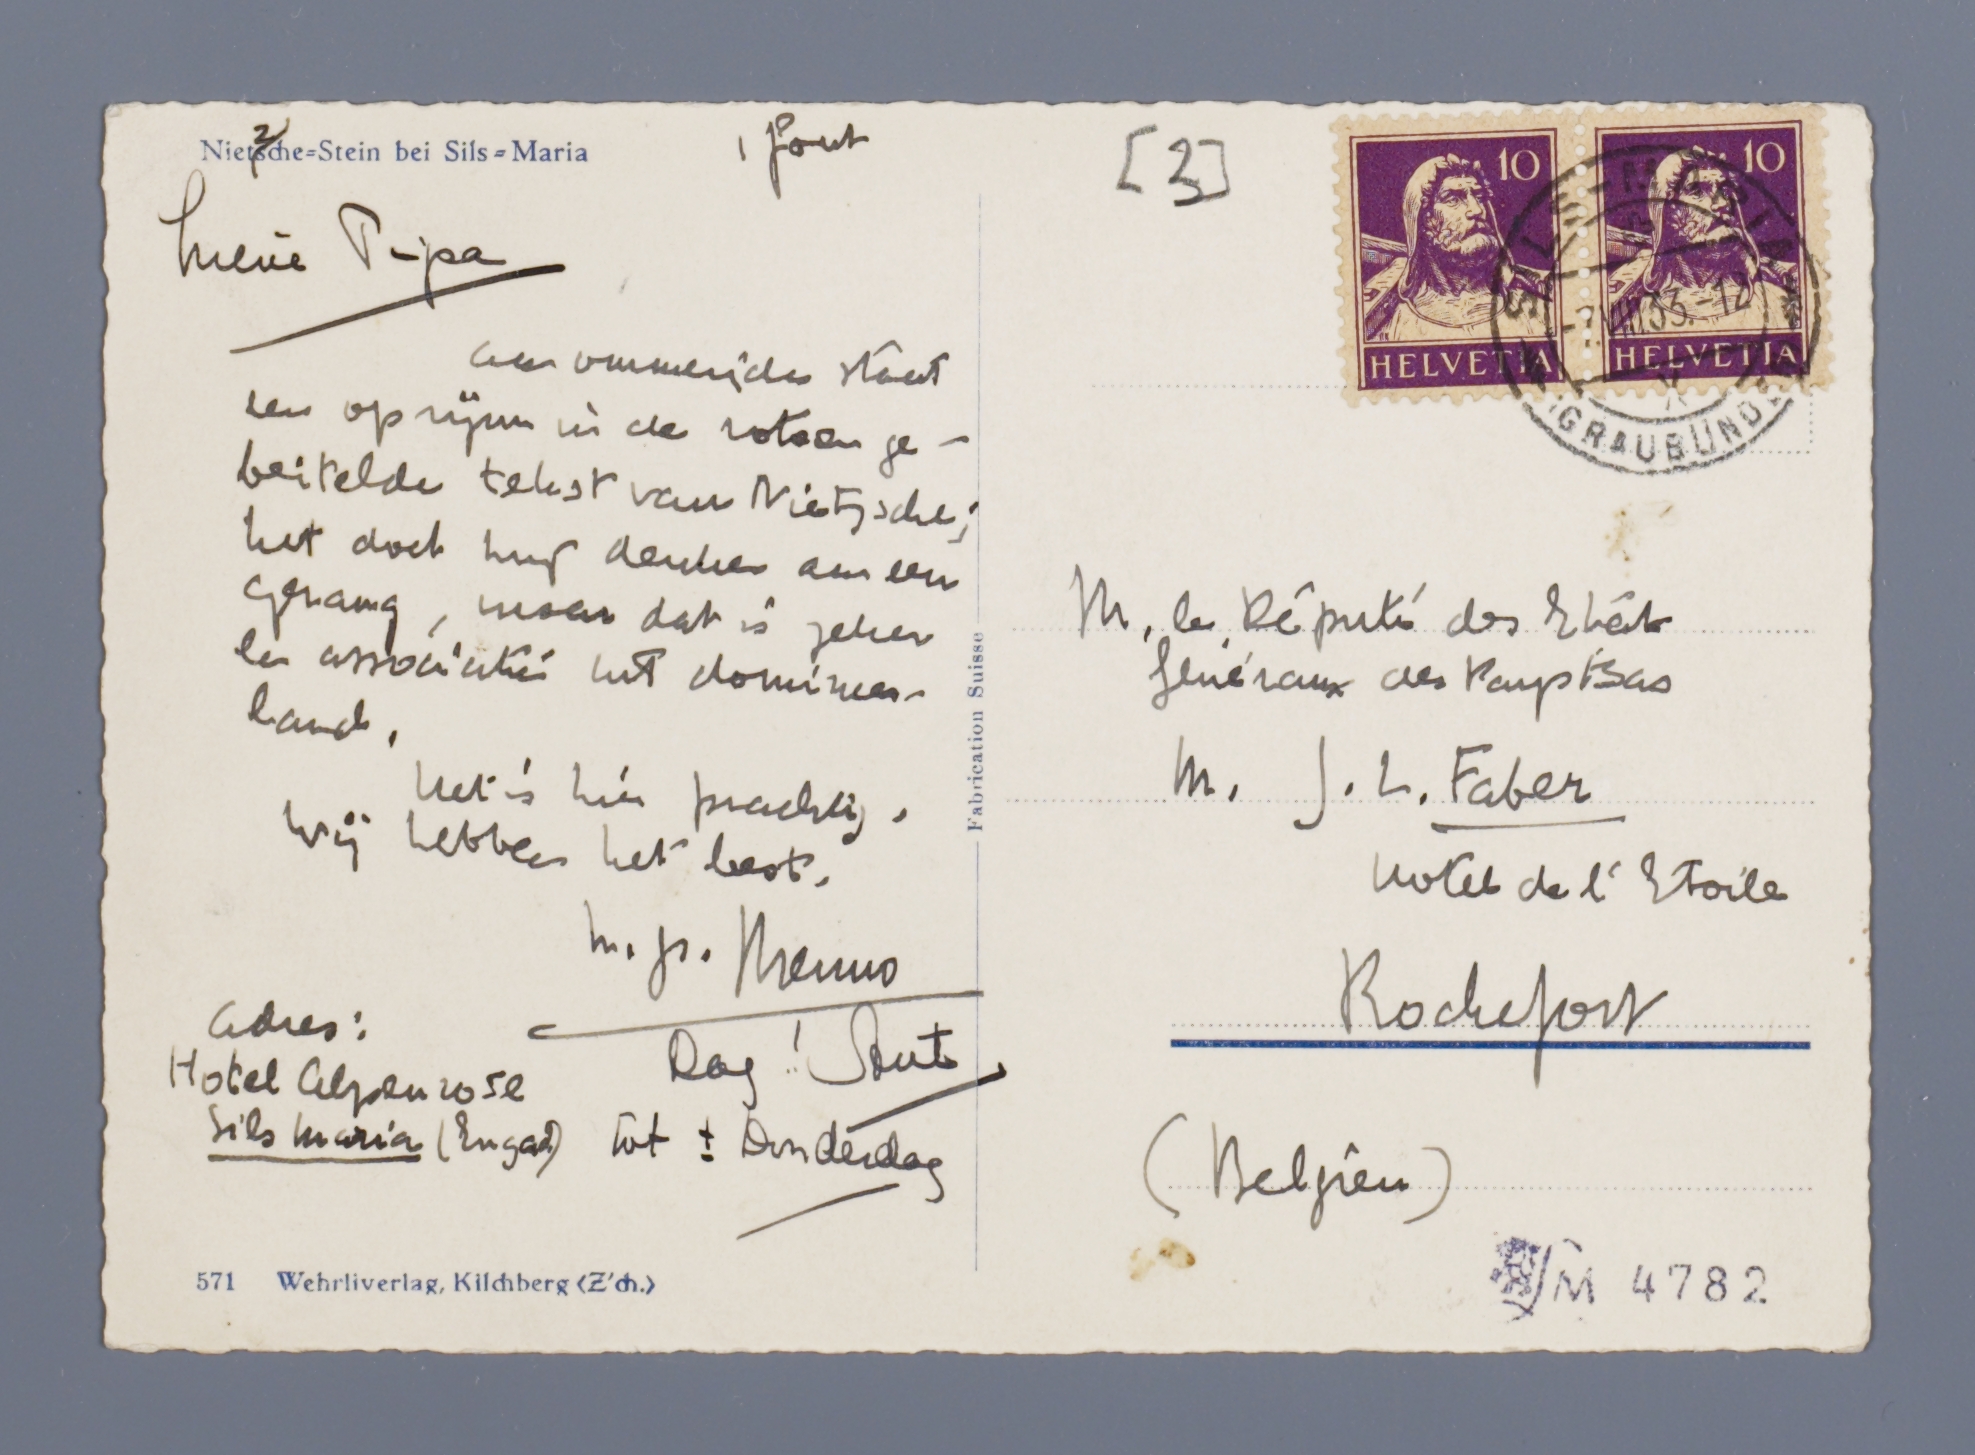 Nietsche=Stein bei Sils=Maria
z
! fout
[3]
10
10
HELVETIA
HELVETIA
SILS-MARIA
(GRAUBÜNDEN)
Lieve Pipa
aan ommezijde staat
een op rijm in de rotsen ge-
beitelde tekst van Nietzsche;
het doet denken aan een
gezang, maar dat is zeker
een associatie met domineesland.
Het is hier prachtig.
Wij hebben het best.
m. gr. Menno
Dag! Ant
adres:
Hotel Alpenrose
Sils Maria (Engad) tot ± Donderdag
571 Wehrliverlag, Kilchberg (Z'ch.)
Fabrication Suisse
M. le Député des Etats
Généraux des Pays Bas
M. J. L. Faber
Hotel de l'Etoile
Rochefort
(Belgien)
M 4782